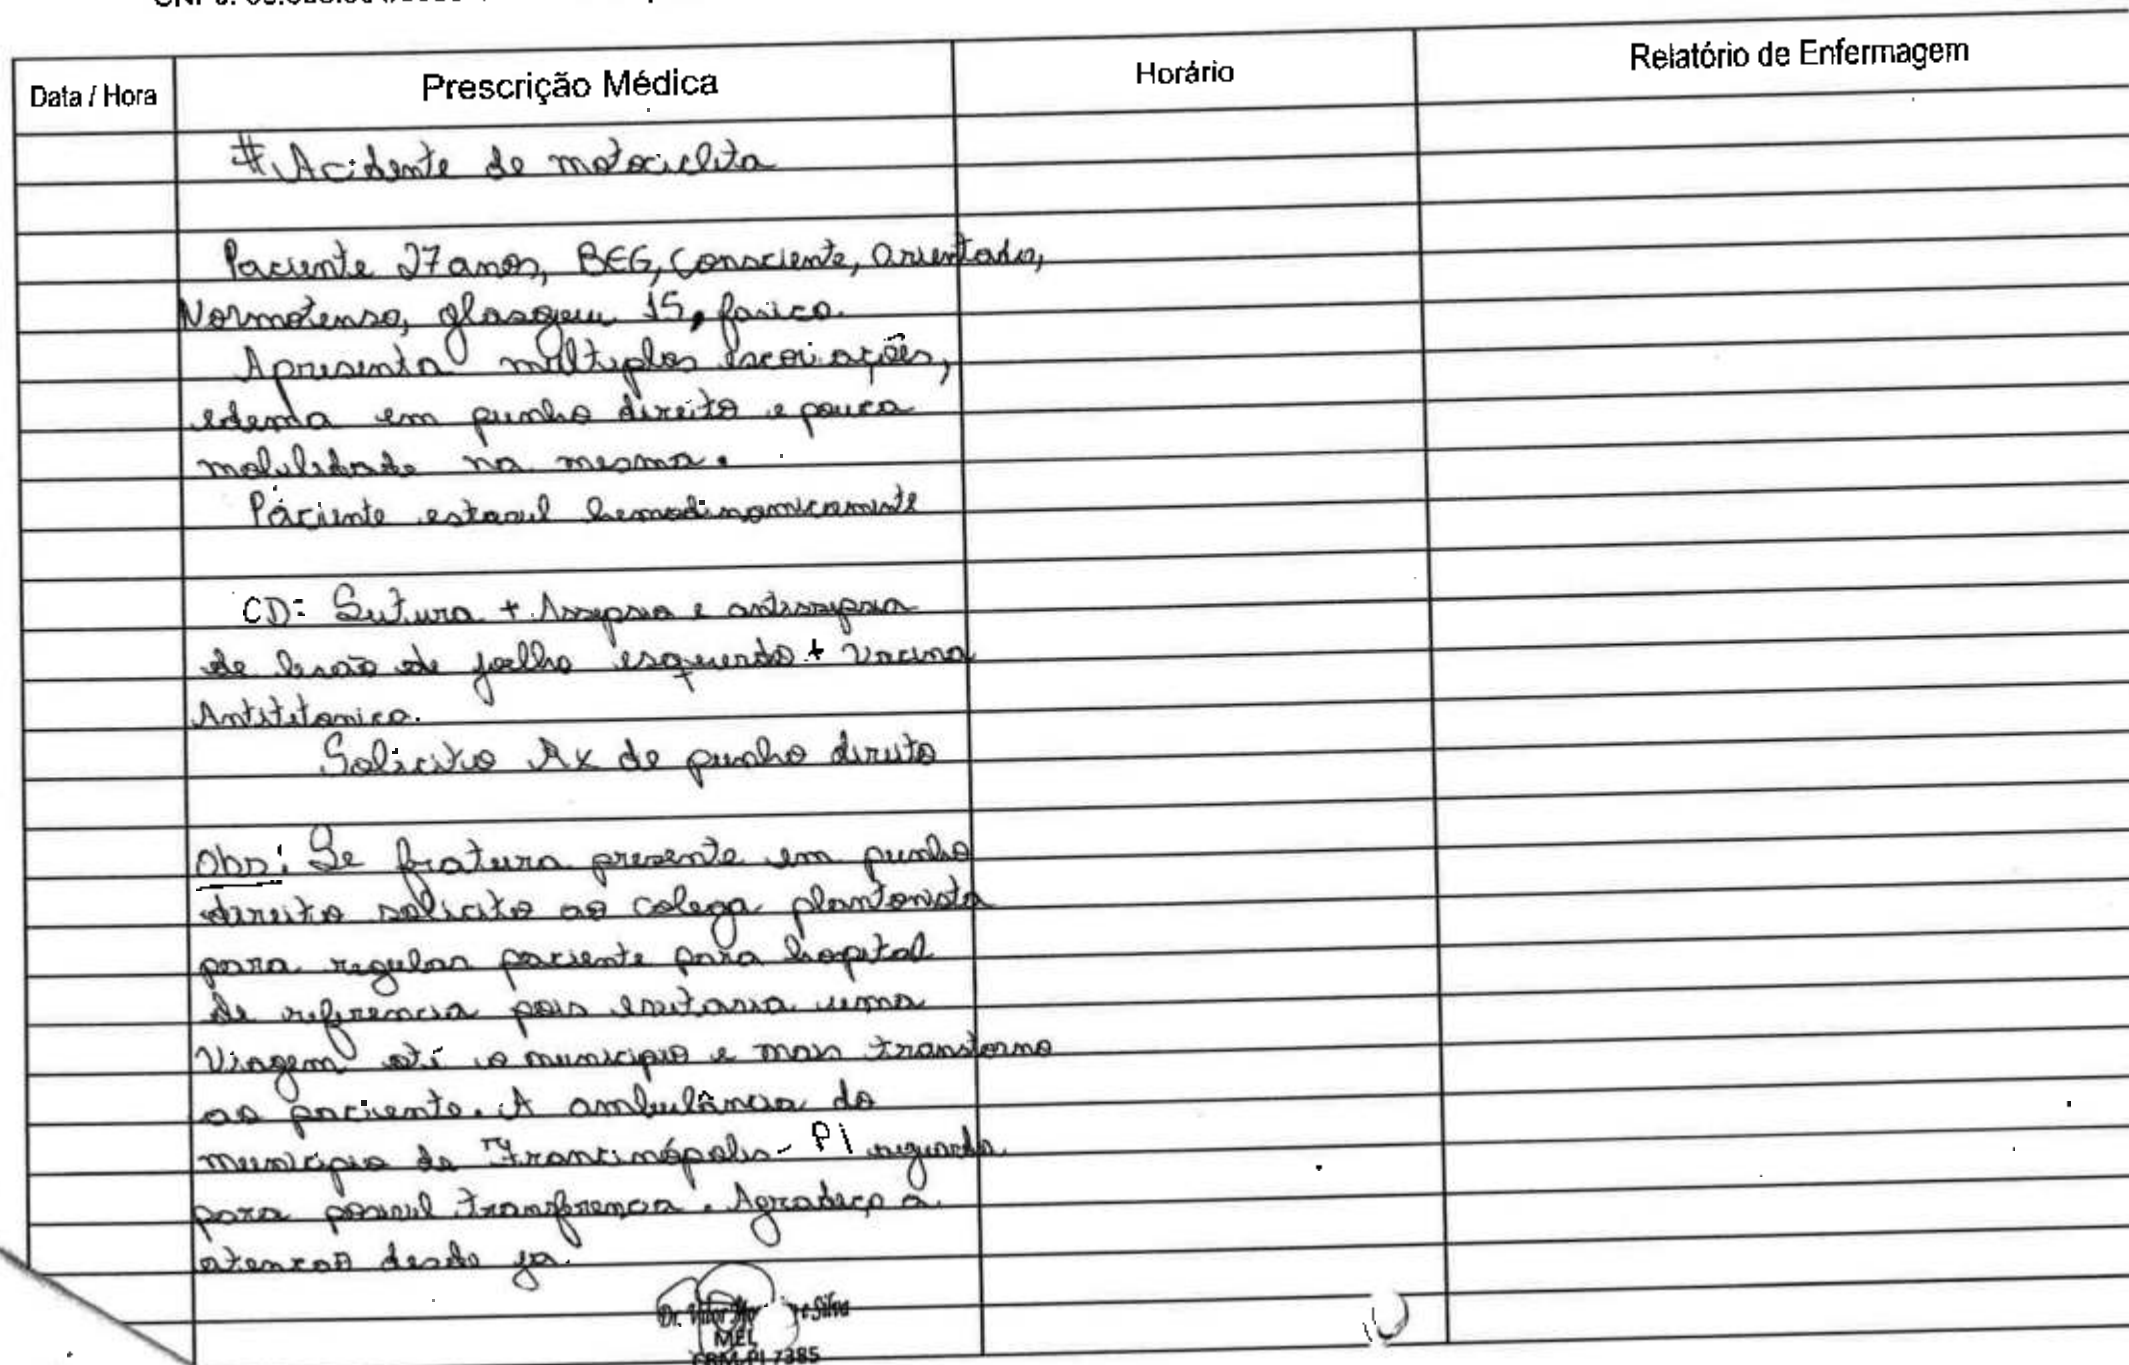 Data / Hora
Prescrição Médica
Horário
Relatório de Enfermagem
# Acidente de motociclita
Paciente 27 anos, BEG, Consciente, Orientado,
Normotenso, glasgow 15, fasico.
Apresenta multiplas escoriações,
edema em punho direito e pouca
mobilidade na mesma.
Paciente estavel hemodinamicamente
CD: Sutura + Assepsia e antissepsia
de lesão de joelho esquerdo + Vacina
Antitetanica.
Solicitio Rx de punho direito
Obs: Se fratura presente em punho
direito solicito ao colega plantonista
para regular paciente para hospital
de referencia pois evitaria uma
Viagem até o municipio e mais transtorno
ao paciente. A ambulância do
municipio de Francinópolis - PI aguarda
para possivel transferencia. Agradeço a
atenção desde ja.
Dr. Vitor e Silva
CRM-PI 7385